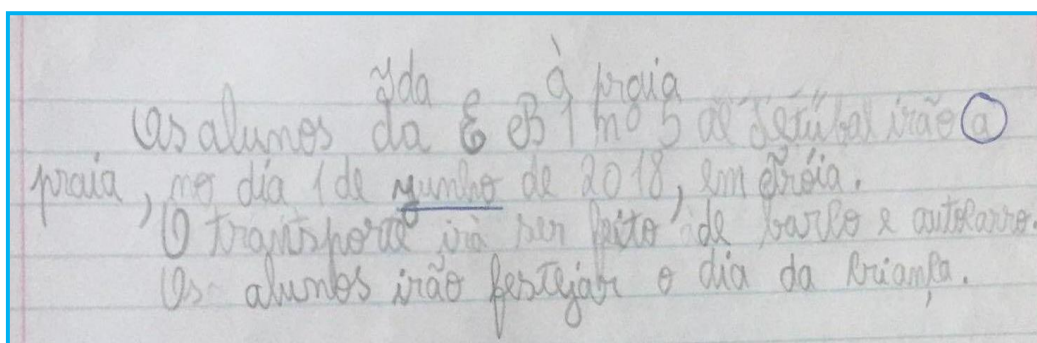 Yda à praia
Os alunos da EB1 nº 5 de Setúbal irão a
praia, no dia 1 de yunho de 2018, em Tróia.
O transporte irá ser feito de barco e autocarro.
Os alunos irão festejar o dia da criança.